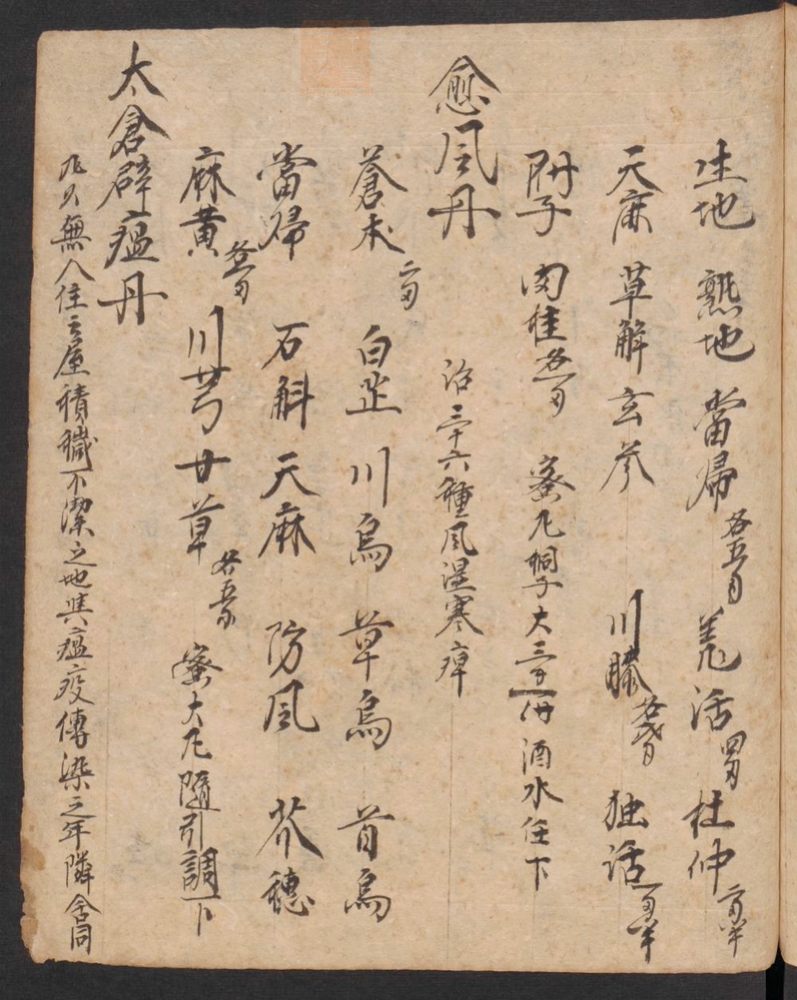 生地 熟地 當㱕 各五両 羗活 四両 杜仲 二両半
天麻 草解 玄參 川膝 各 独活 一両半
附子 肉桂 各一両 蜜凡桐子大 酒水任下
愈風丹 治三十六種風湿寒痺
蒼术 二両 白芷 川烏 草烏 首烏
當㱕 石斛 天麻 防風 芥穗
麻黄 各一両 川芎 甘草 各五 蜜大凡随引調下
太倉辟瘟丹
凡久無人住之屋積穢不潔之地與瘟疫傳染之年隣舍同